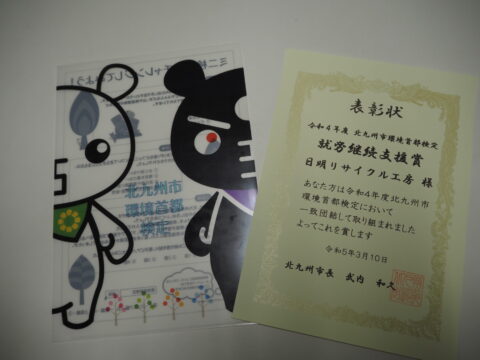 北九州市
環境首都
検定
表彰状
令和4年度 北九州市環境首都検定
就労継続支援賞
日明リサイクル工房 様
あなた方は令和4年度北九州市
環境首都検定において
一致団結して取り組まれました
よってこれを賞します
令和5年3月10日
北九州市長 武内 和久